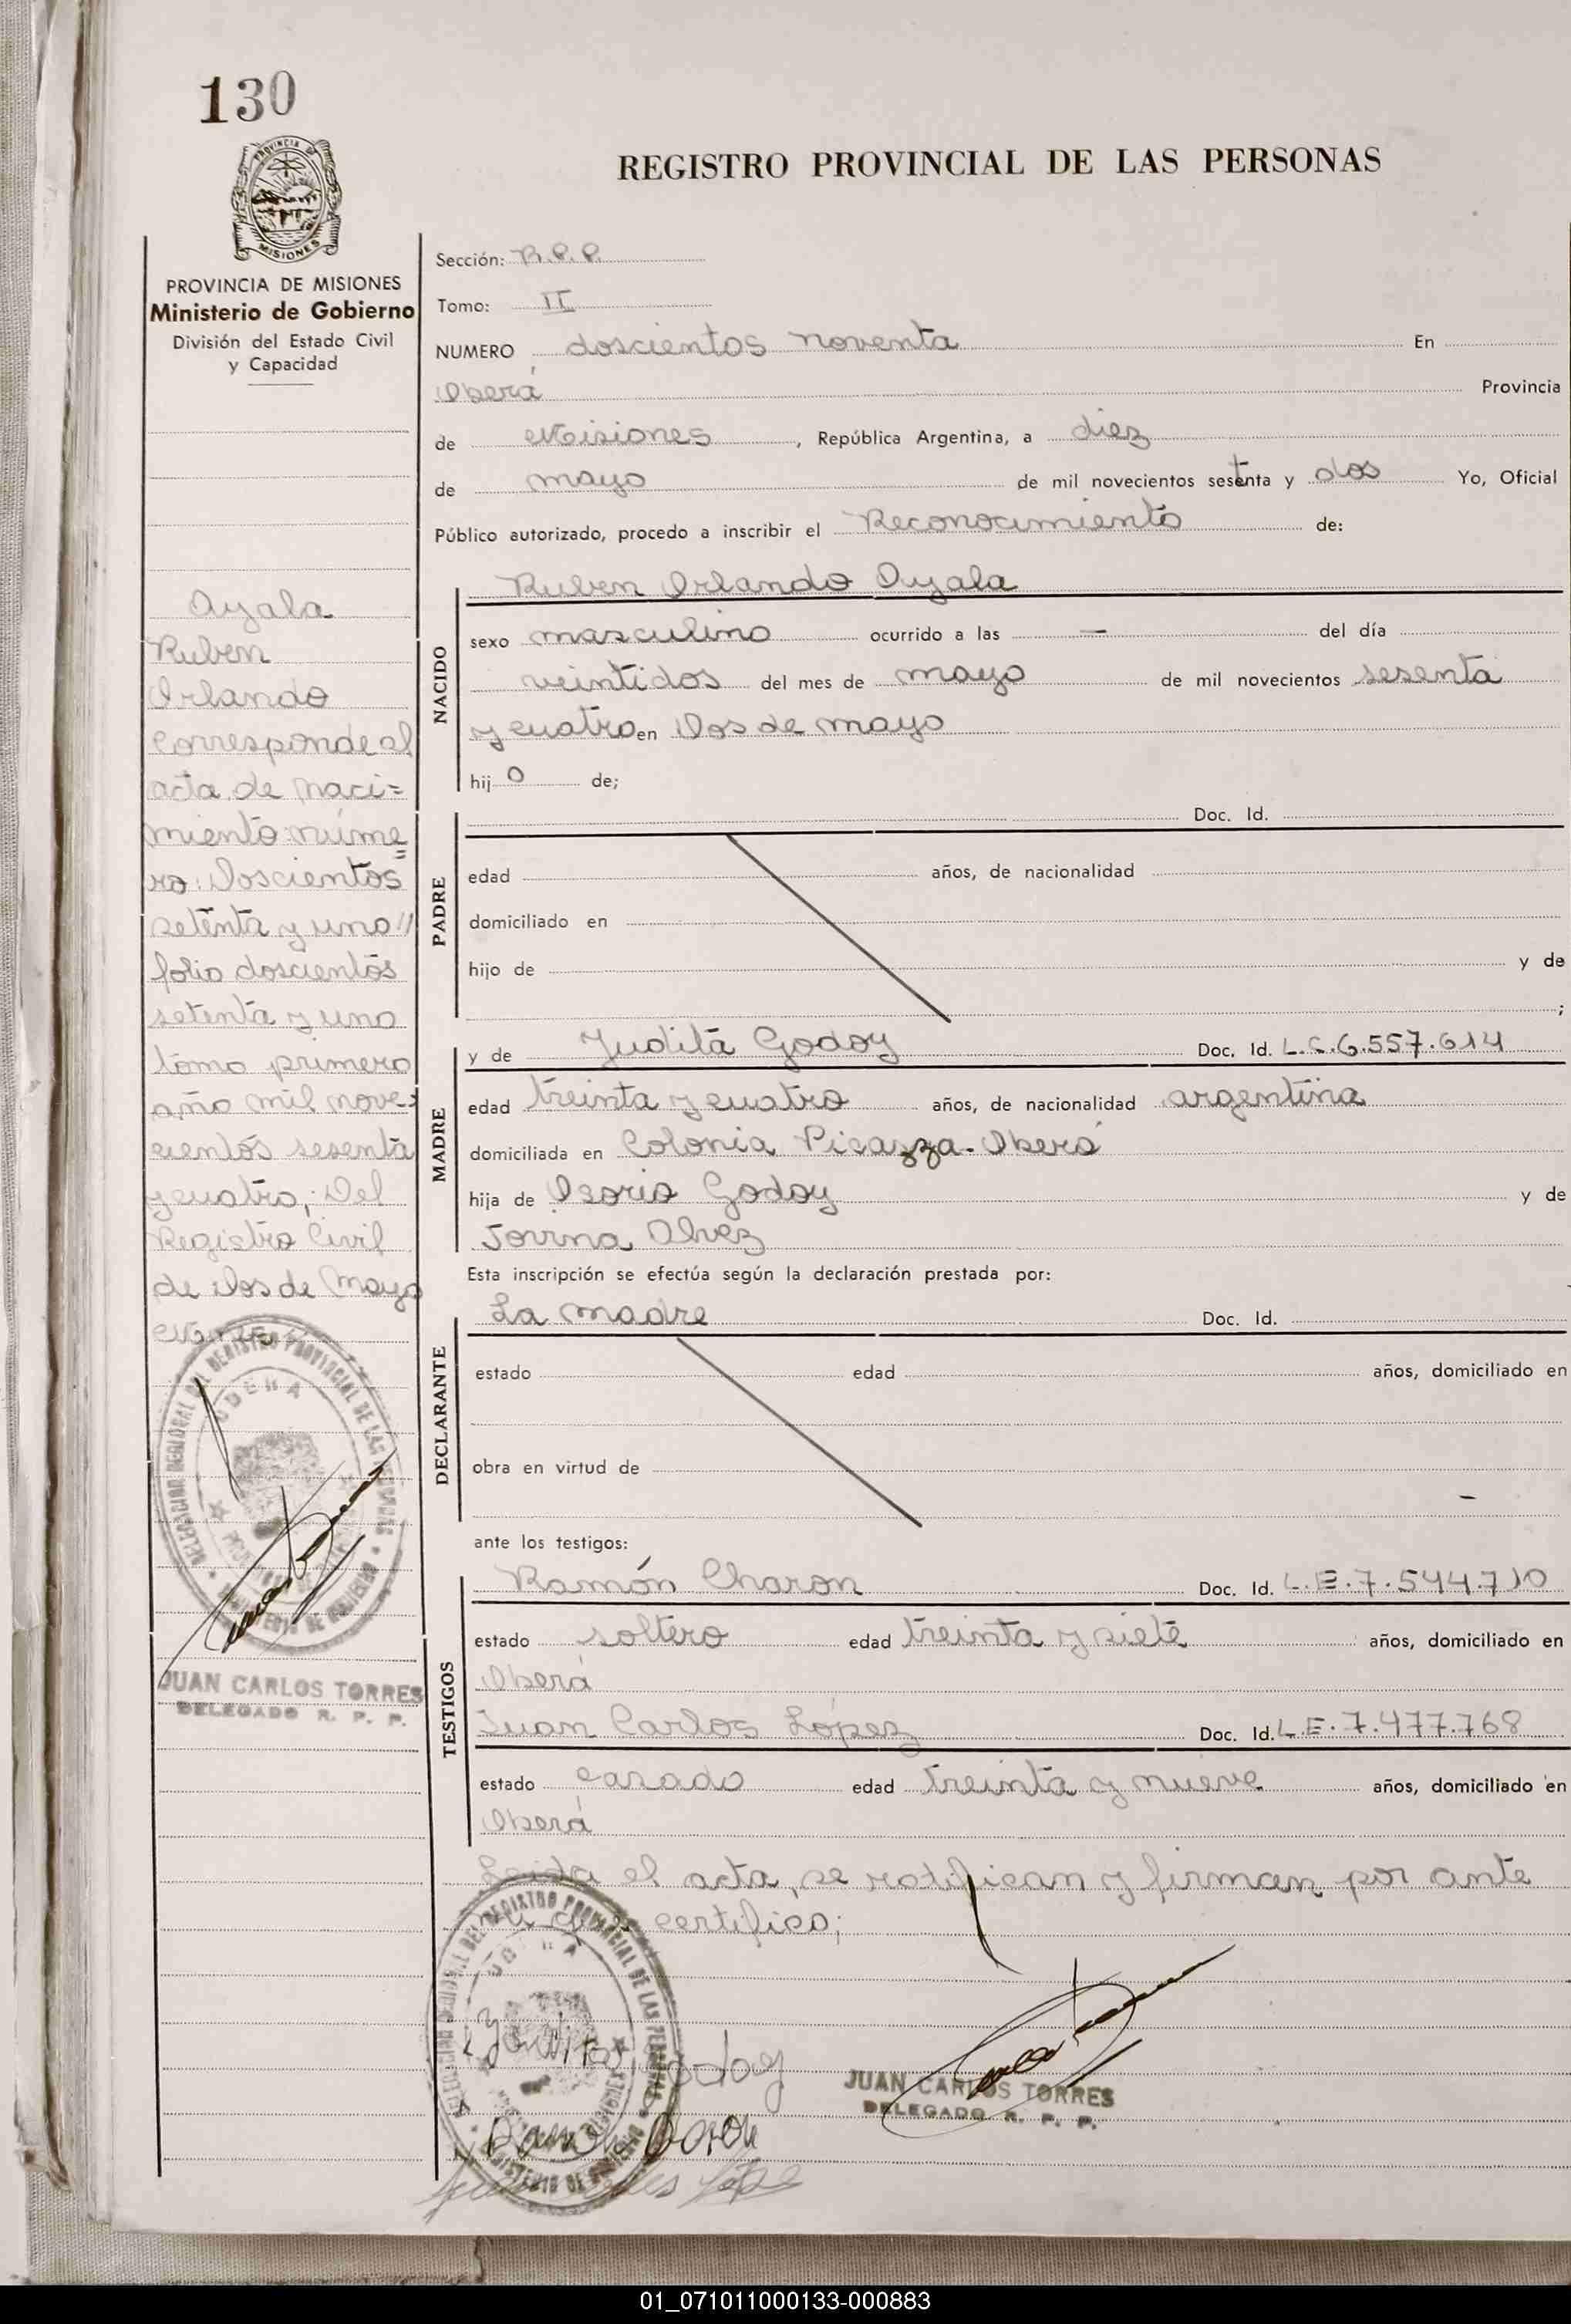 130
PROVINCIA DE MISIONES
MISIONES
PROVINCIA DE MISIONES
Ministerio de Gobierno
División del Estado Civil
y Capacidad
Ayala
Ruben
Orlando
corresponde al
acta de naci=
miento núme=
ro: Doscientos
setenta y uno//
folio doscientos
setenta y uno
tomo primero
año mil nove=
cientos sesenta
y cuatro; Del
Registro Civil
de Dos de Mayo
JUAN CARLOS TORRES
DELEGADO R. P. P.
REGISTRO PROVINCIAL DE LAS PERSONAS
Sección: R.P.P.
Tomo: II
NUMERO doscientos noventa En
Oberá Provincia
de Misiones, República Argentina, a diez
de mayo de mil novecientos setenta y dos Yo, Oficial
Público autorizado, procedo a inscribir el Reconocimiento de:
NACIDO
Ruben Orlando Ayala
sexo masculino ocurrido a las — del día
veintidos del mes de mayo de mil novecientos sesenta
y cuatro en Dos de mayo
hijo de;
PADRE
Doc. Id.
edad años, de nacionalidad
domiciliado en
hijo de y de
;
MADRE
y de Judita Godoy Doc. Id. L.C.6.557.614
edad treinta y cuatro años, de nacionalidad argentina
domiciliada en Colonia Picazza-Oberá
hija de Godoy y de
Alvez
Esta inscripción se efectúa según la declaración prestada por:
DECLARANTE
La madre Doc. Id.
estado edad años, domiciliado en
obra en virtud de
ante los testigos:
TESTIGOS
Ramón Charon Doc. Id. L.E.7.544.710
estado soltero edad treinta y siete años, domiciliado en
Oberá
Juan Carlos López Doc. Id. L.E.7.477.768
estado casado edad treinta y nueve años, domiciliado en
Oberá
Leida el acta, se ratifican y firman por ante
certifico;
JUAN CARLOS TORRES
DELEGADO R. P. P.
01_071011000133-000883